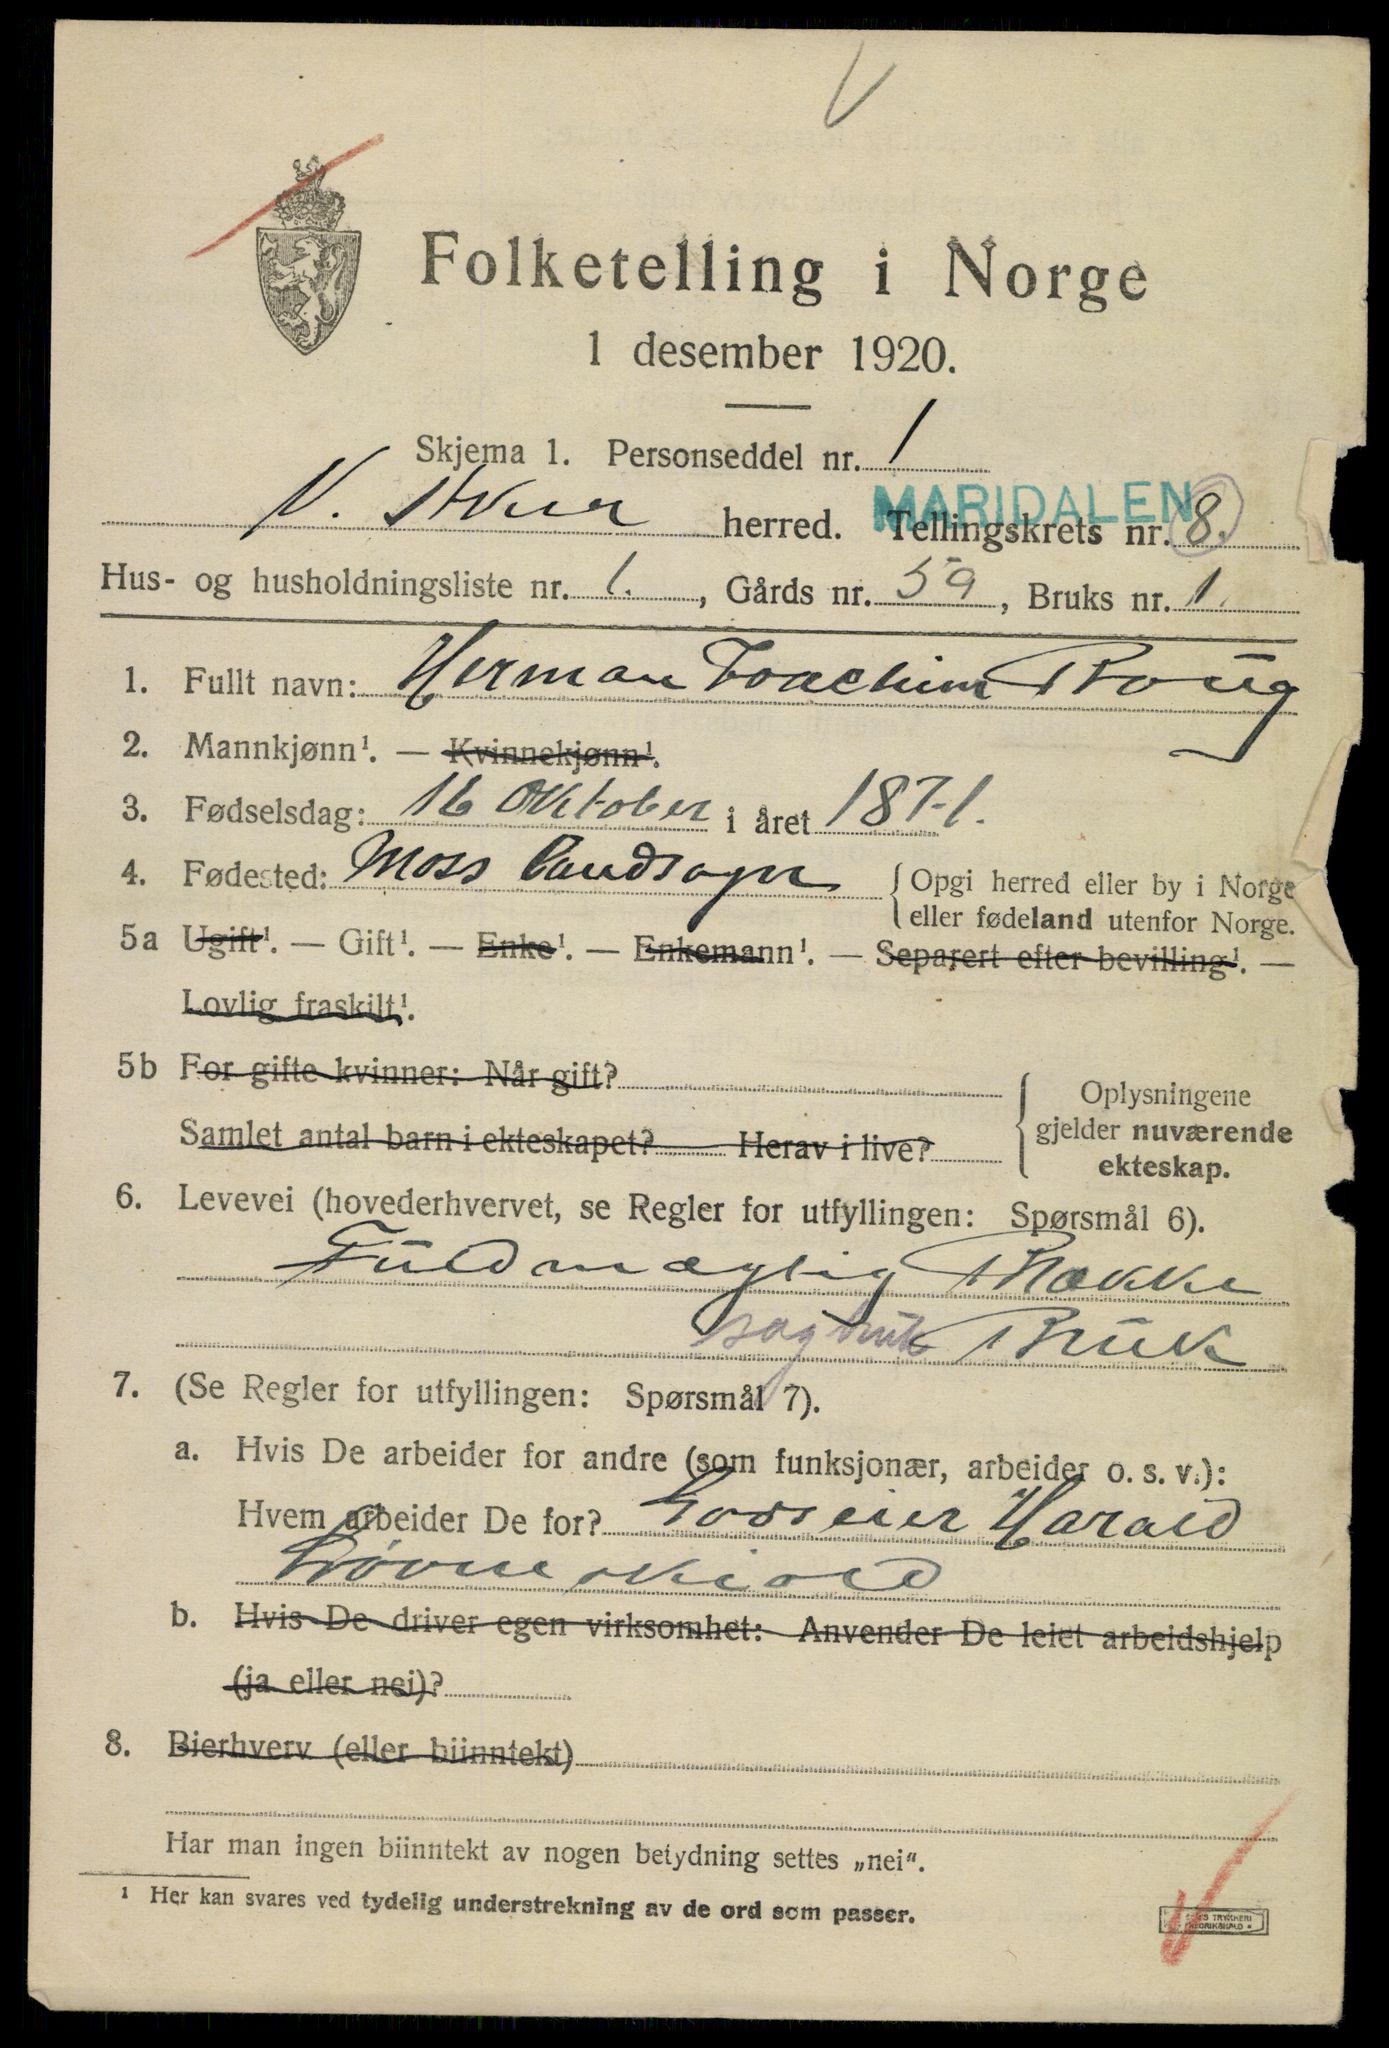 V
Folketelling i Norge
1 desember 1920.
Skjema 1. Personseddel nr. 1
MARIDALEN
N. Aker herred. Tellingskrets nr. 8.
Hus- og husholdningsliste nr. 1., Gårds nr. 59, Bruks nr. 1.
1. Fullt navn: Herman Joachim
2. Mannkjønn¹. — Kvinnekjønn¹.
3. Fødselsdag: 16 Oktober i året 1871.
4. Fødested: Moss Landsogn {Opgi herred eller by i Norge
eller fødeland utenfor Norge.
5a Ugift¹. — Gift¹. — Enke¹. — Enkemann¹. — Separert efter bevilling¹. —
Lovlig fraskilt¹.
5b For gifte kvinner: Når gift?
Samlet antal barn i ekteskapet? Herav i live?
Oplysningene
gjelder nuværende
ekteskap.
6. Levevei (hovederhvervet, se Regler for utfyllingen: Spørsmål 6).
Fuldmægtig
sagbruk Bruk
7. (Se Regler for utfyllingen: Spørsmål 7).
a. Hvis De arbeider for andre (som funksjonær, arbeider o. s. v.):
Hvem arbeider De for? Godseier Harald
Løvenskiold
b. Hvis De driver egen virksomhet: Anvender De leiet arbeidshjelp
(ja eller nei)?
8. Bierhverv (eller biinntekt)
Har man ingen biinntekt av nogen betydning settes „nei“.
¹ Her kan svares ved tydelig understrekning av de ord som passer.
TRYKKERI